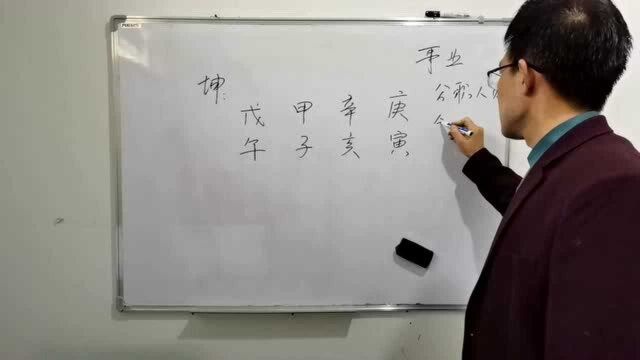 事业
坤:
戊 甲 辛 庚
午 子 亥 寅
公职人